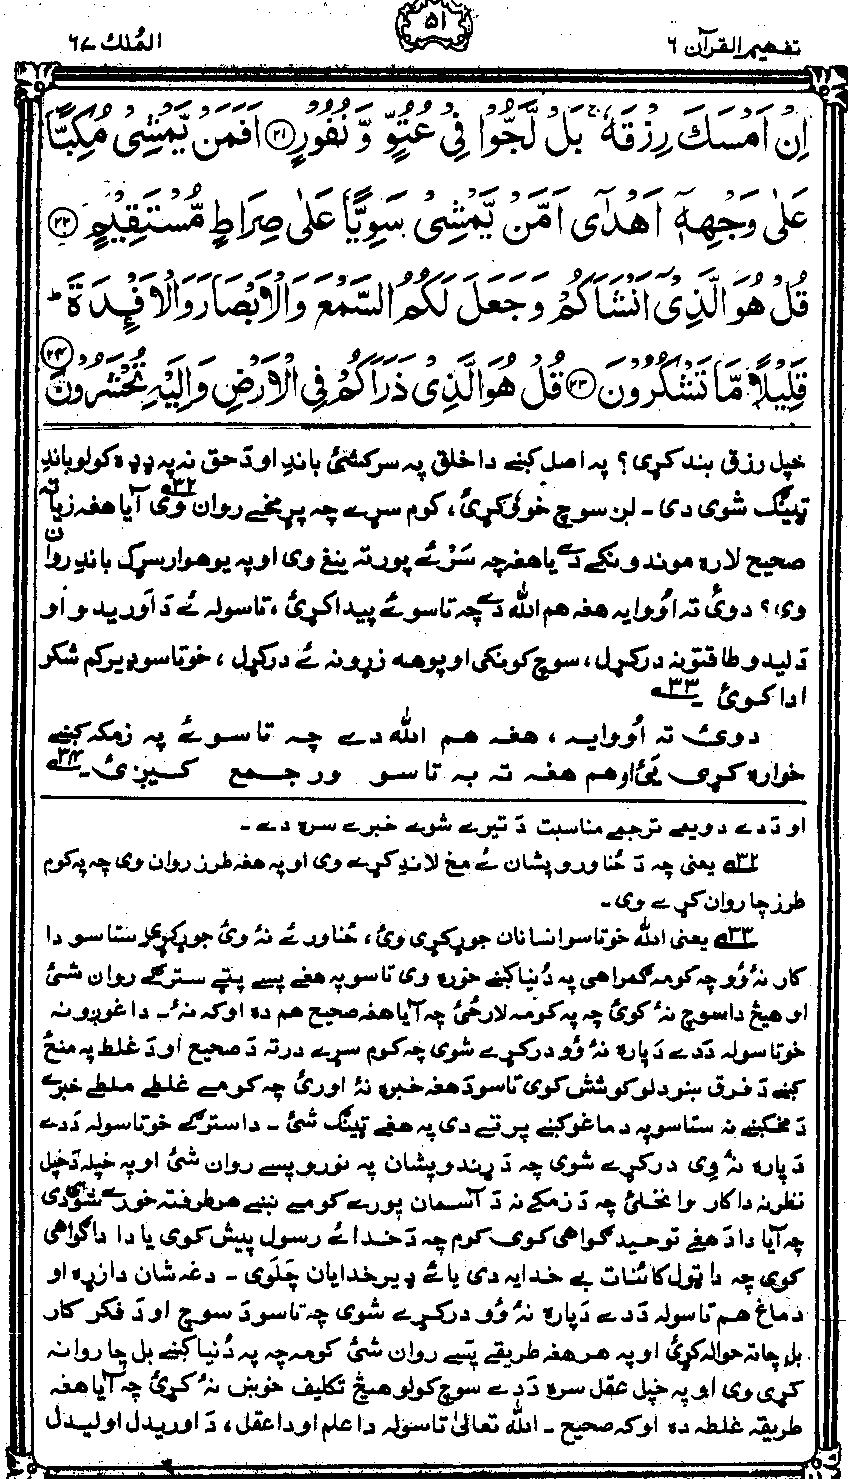 تفهیم القرآن ۶
۵۱
الملک ۶۷
اِنْ اَمْسَكَ رِزْقَهٗ ۚ بَلْ لَّجُّوْا فِيْ عُتُوٍّ وَّ نُفُوْرٍ ﴿۲۱﴾ اَفَمَنْ يَّمْشِيْ مُكِبًّا
عَلٰى وَجْهِهٖٓ اَهْدٰٓى اَمَّنْ يَّمْشِيْ سَوِيًّا عَلٰى صِرَاطٍ مُّسْتَقِيْمٍ ﴿۲۲﴾
قُلْ هُوَ الَّذِيْٓ اَنْشَاَكُمْ وَجَعَلَ لَكُمُ السَّمْعَ وَالْاَبْصَارَ وَالْاَفْـِٕدَةَ ؕ
قَلِيْلًا مَّا تَشْكُرُوْنَ ﴿۲۳﴾ قُلْ هُوَ الَّذِيْ ذَرَاَكُمْ فِي الْاَرْضِ وَاِلَيْهِ تُحْشَرُوْنَ ﴿۲۴﴾
خپل رزق بند کړی؟ په اصل کښے دا خلق په سرکشئ باندِ او دَ حق نه په ډډه کولو باندِ
ټینګ شوی دی۔ لږ سوچ خو ئی کړئ، کوم سړے چه پړمخے روان وی ۳۲ آیا هغه زیاته
صحیح لاره موندونکے دے یا هغه چه سَرْ ئے پورته نیغ وی او په یو هوار سړک باندِ روان
وی؟ دوئ ته اُووایه هغه هم الله دے چه تاسو ئے پیدا کړئ، تاسو له ئے دَ اَوریدو او
دَ لیدو طاقتونه درکړل، سوچ کونکی او پوهه زړونه ئے درکړل، خو تاسو ډیر کم شکر
ادا کوئ ۳۳۔
دوئ ته اُووایه، هغه هم الله دے چه تاسو ئے په زمکه کښے
خواره کړی یئ او هم هغه ته به تاسو ور جمع کیږئ ۳۴۔
او دَ دے دویمے ترجمے مناسبت دَ تیرے شوے خبرے سره دے۔
۳۲ یعنی چه دَ ځناورو پشان ئے مخ لاندِ کړے وی او په هغه طرز روان وی چه په کوم
طرز چا روان کړے وی۔
۳۳ یعنی الله خو تاسو انسانان جوړ کړی وئ، ځناور ئے نۀ وئ جوړ کړی ستاسو دا
کار نۀ وُو چه کومه ګمراهی په دُنیا کښے خوره وی تاسو په هغے پسے پټے سترګے روان شئ
او هیڅ دا سوچ نۀ کوئ چه په کومه لار ځئ چه آیا هغه صحیح هم ده اوکه نۀ۔ دا غوږونه
خو تاسو له دَ دے دَ پاره نۀ وُو درکړے شوی چه کوم سړے درته دَ صحیح او دَ غلط په منځ
کښے دَ فرق ښودلو کوشش کوی تاسو دَ هغه خبره نۀ اورئ چه کومے غلطے ملطے خبرے
دَ مخکښے نه ستاسو په دماغو کښے پرتے دی په هغے ټینګ شئ۔ دا سترګے خو تاسو له دَ دے
دَ پاره نۀ وی درکړے شوی چه دَ ړندو پشان په نورو پسے روان شئ او په خپله دَ خپل
نظر نه دا کار وا نخلئ چه دَ زمکے نه دَ آسمان پورے کومے نښے هر طرفته خورے شوی دی
چه آیا دا دَ هغے توحید ګواهی کوی کوم چه دَ خدائے رسول پیش کوی یا دا دا ګواهی
کوی چه دا ټول کائنات بے خدایه دی یا ئے ډیر خدایان چلوی۔ دغه شان دا زړه او
دماغ هم تاسو له دَ دے دَ پاره نۀ وُو درکړے شوی چه تاسو دَ سوچ او دَ فکر کار
بل چا ته حواله کړئ او په هر هغه طریقے پسے روان شئ کومه چه په دُنیا کښے بل چا روانه
کړی وی او په خپل عقل سره دَ دے سوچ کولو هیڅ تکلیف خوښ نۀ کړئ چه آیا هغه
طریقه غلطه ده اوکه صحیح۔ الله تعالیٰ تاسو له دا علم او دا عقل، دَ اوریدل او لیدل